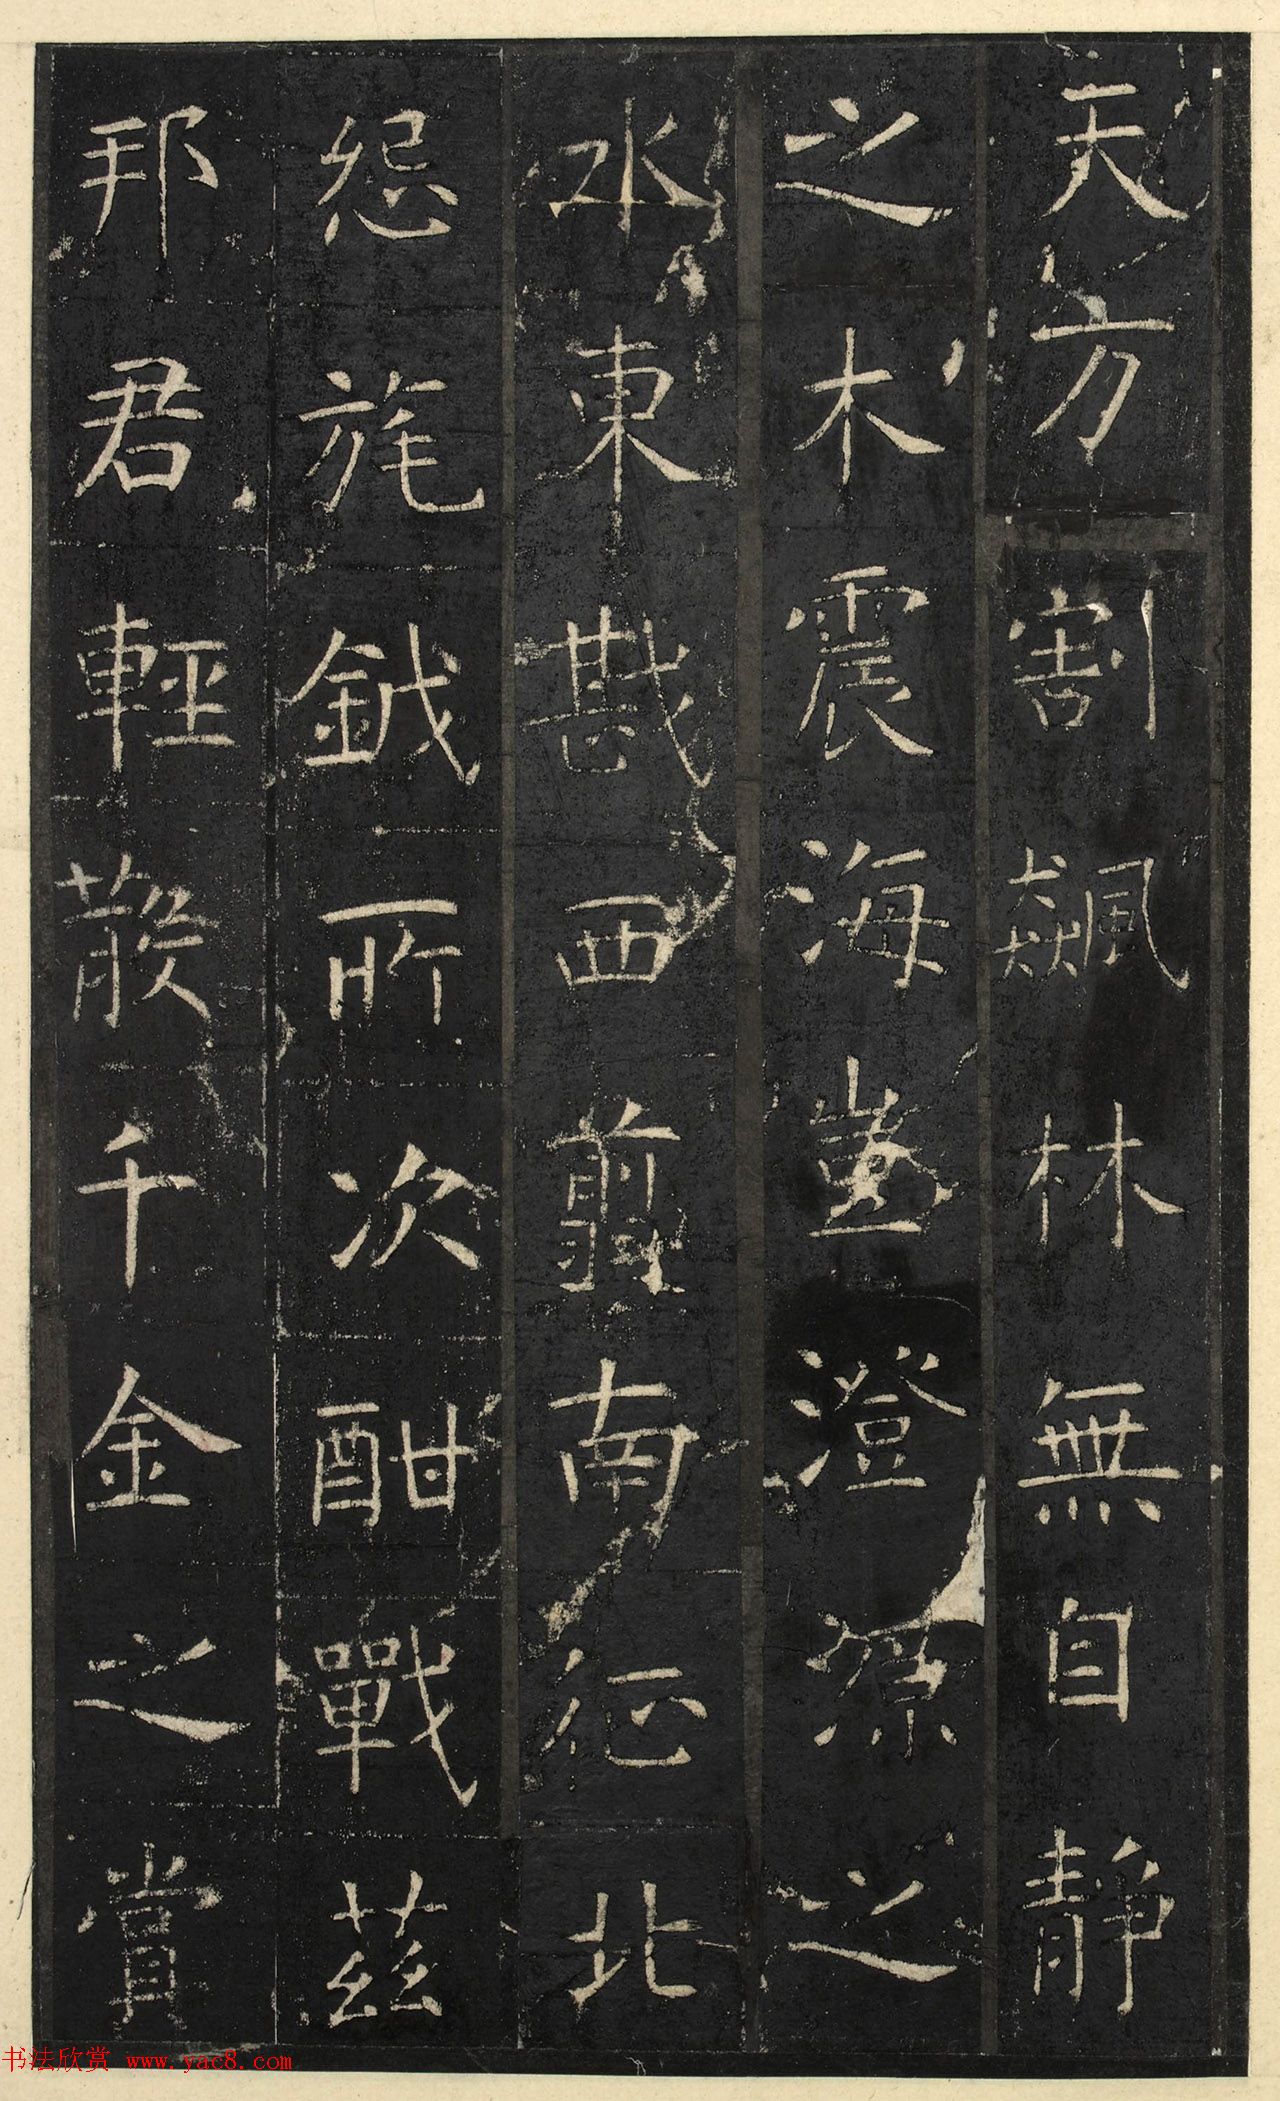 天方割飆林無自靜
之木震海豈澄源之
水東戡西翦南征北
怨旄鉞所次酣戰茲
邦君輕散千金之賞
书法欣赏 www.yac8.com